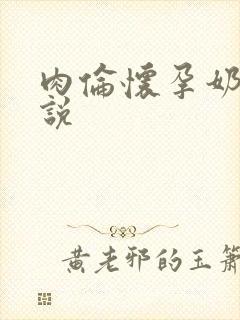 肉倫懷孕奶
説
黃老邪的玉簫